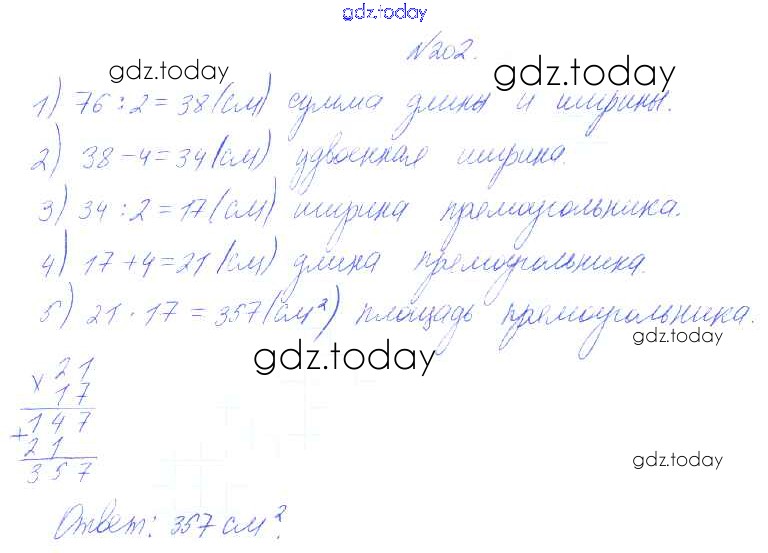 gdz.today
№202.
gdz.today gdz.today
1) 76 : 2 = 38 (см) сумма длины и ширины.
2) 38 - 4 = 34 (см) удвоенная ширина.
3) 34 : 2 = 17 (см) ширина прямоугольника.
4) 17 + 4 = 21 (см) длина прямоугольника.
5) 21 · 17 = 357 (см²) площадь прямоугольника.
gdz.today
gdz.today
× 21
17
147
+ 21
357
gdz.today
Ответ: 357 см².